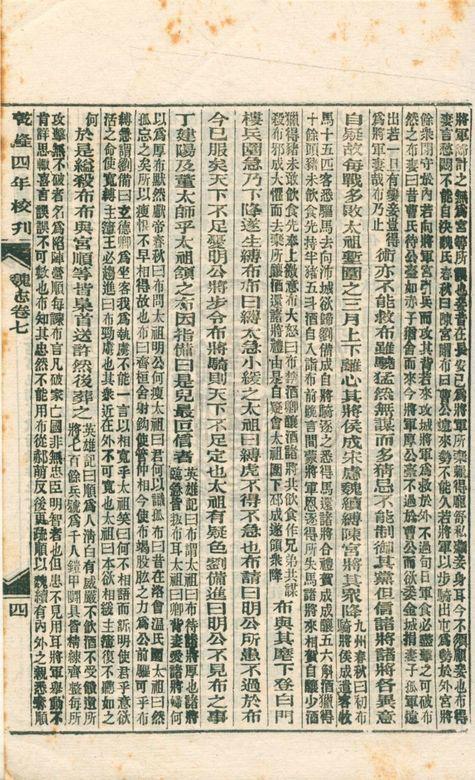 將軍躊計之無爲宮等所誤也妾昔在長安已爲將軍所棄賴得龐舒私藏妾身耳今不須顧妾也布得
妻言愁悶不能自決魏氏春秋曰陳宮謂布曰曹公遠來勢不能久若將軍以步騎出屯爲勢於外宮將
餘衆閉守於內若向將軍宮引兵而攻其背若來攻城將軍爲救於外不過旬日軍食必盡擊之可破布
然之布妻曰昔曹氏待公臺如赤子猶舍而來今將軍厚公臺不過於曹公而欲委全城捐妻子孤軍遠
出若一旦有變妾豈得
爲將軍妻哉布乃止
術亦不能救布雖驍猛然無謀而多猜忌不能制御其黨但信諸將諸將各異意
自疑故每戰多敗太祖塹圍之三月上下離心其將侯成宋憲魏續縛陳宮將其衆降
九州春秋曰初布
騎將侯成遣客牧
馬十五匹客悉驅馬去向沛城欲歸劉備成自將騎逐之悉得馬還諸將合禮賀成成釀五六斛酒獵得
十餘頭豬未飲食先持半豬五斗酒自入詣布前跪言間蒙將軍恩逐得所失馬諸將來相賀自釀少酒
獵得豬未敢飲食先奉上微意布大怒曰布禁酒卿釀酒諸將共飲食作兄弟共謀
殺布邪成大懼而去棄所釀酒還諸將禮由是自疑會太祖圍下邳成遂領衆降
布與其麾下登白門
樓兵圍急乃下降遂生縛布布曰縛太急小緩之太祖曰縛虎不得不急也布請曰明公所患不過於布
今已服矣天下不足憂明公將步令布將騎則天下不足定也太祖有疑色劉備進曰明公不見布之事
丁建陽及董太師乎太祖頷之布因指備曰是兒最叵信者
英雄記曰布謂太祖曰布待諸將厚也諸將
臨急皆叛布耳太祖曰卿背妻愛諸將婦何
以爲厚布默然獻帝春秋曰布問太祖明公何瘦太祖曰君何以識孤布曰昔在洛會溫氏園太祖曰然
孤忘之矣所以瘦恨不早相得故也布曰齊桓舍射鉤使管仲相今使布竭股肱之力爲公前驅可乎布
縛急謂劉備曰玄德卿爲坐客我爲執虜不能一言以相寬乎太祖笑曰何不相語而訴明使君乎意欲
活之命使寬縛主簿王必趨進曰布勍虜也其衆近在外不可寬也太祖曰本欲相緩主簿復不聽如之
何
於是縊殺布布與宮順等皆梟首送許然後葬之
英雄記曰順爲人清白有威嚴不飲酒不受饋遺所
將七百餘兵號爲千人鎧甲鬬具皆精練齊整每所
攻擊無不破者名爲陷陣營順每諫布言凡破家亡國非無忠臣明智者也但患不見用耳將軍舉動不
肯詳思輒喜言誤誤不可數也布知其忠然不能用布從郝萌反後更疏順以魏續有內外之親悉奪順
乾隆四年校刊
魏志卷七
四